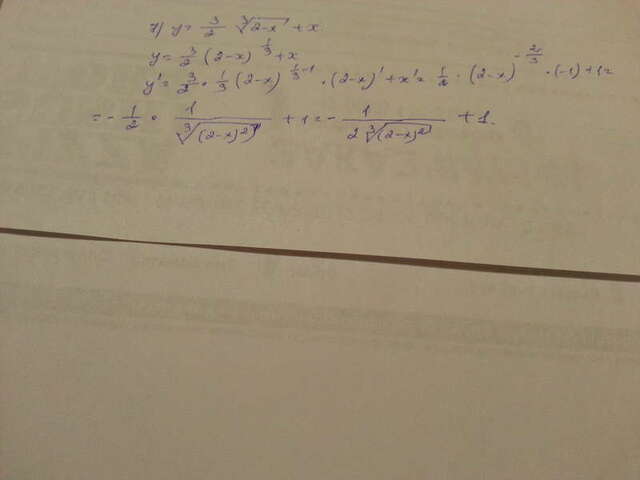 7) y = 3/2 ∛(2-x) + x
y = 3/2 (2-x)^(1/3) + x
y' = 3/2 · 1/3 (2-x)^(1/3 -1) · (2-x)' + x' = 1/2 · (2-x)^(-2/3) · (-1) + 1 =
= - 1/2 · 1/∛((2-x)²) + 1 = - 1/(2∛((2-x)²)) + 1.